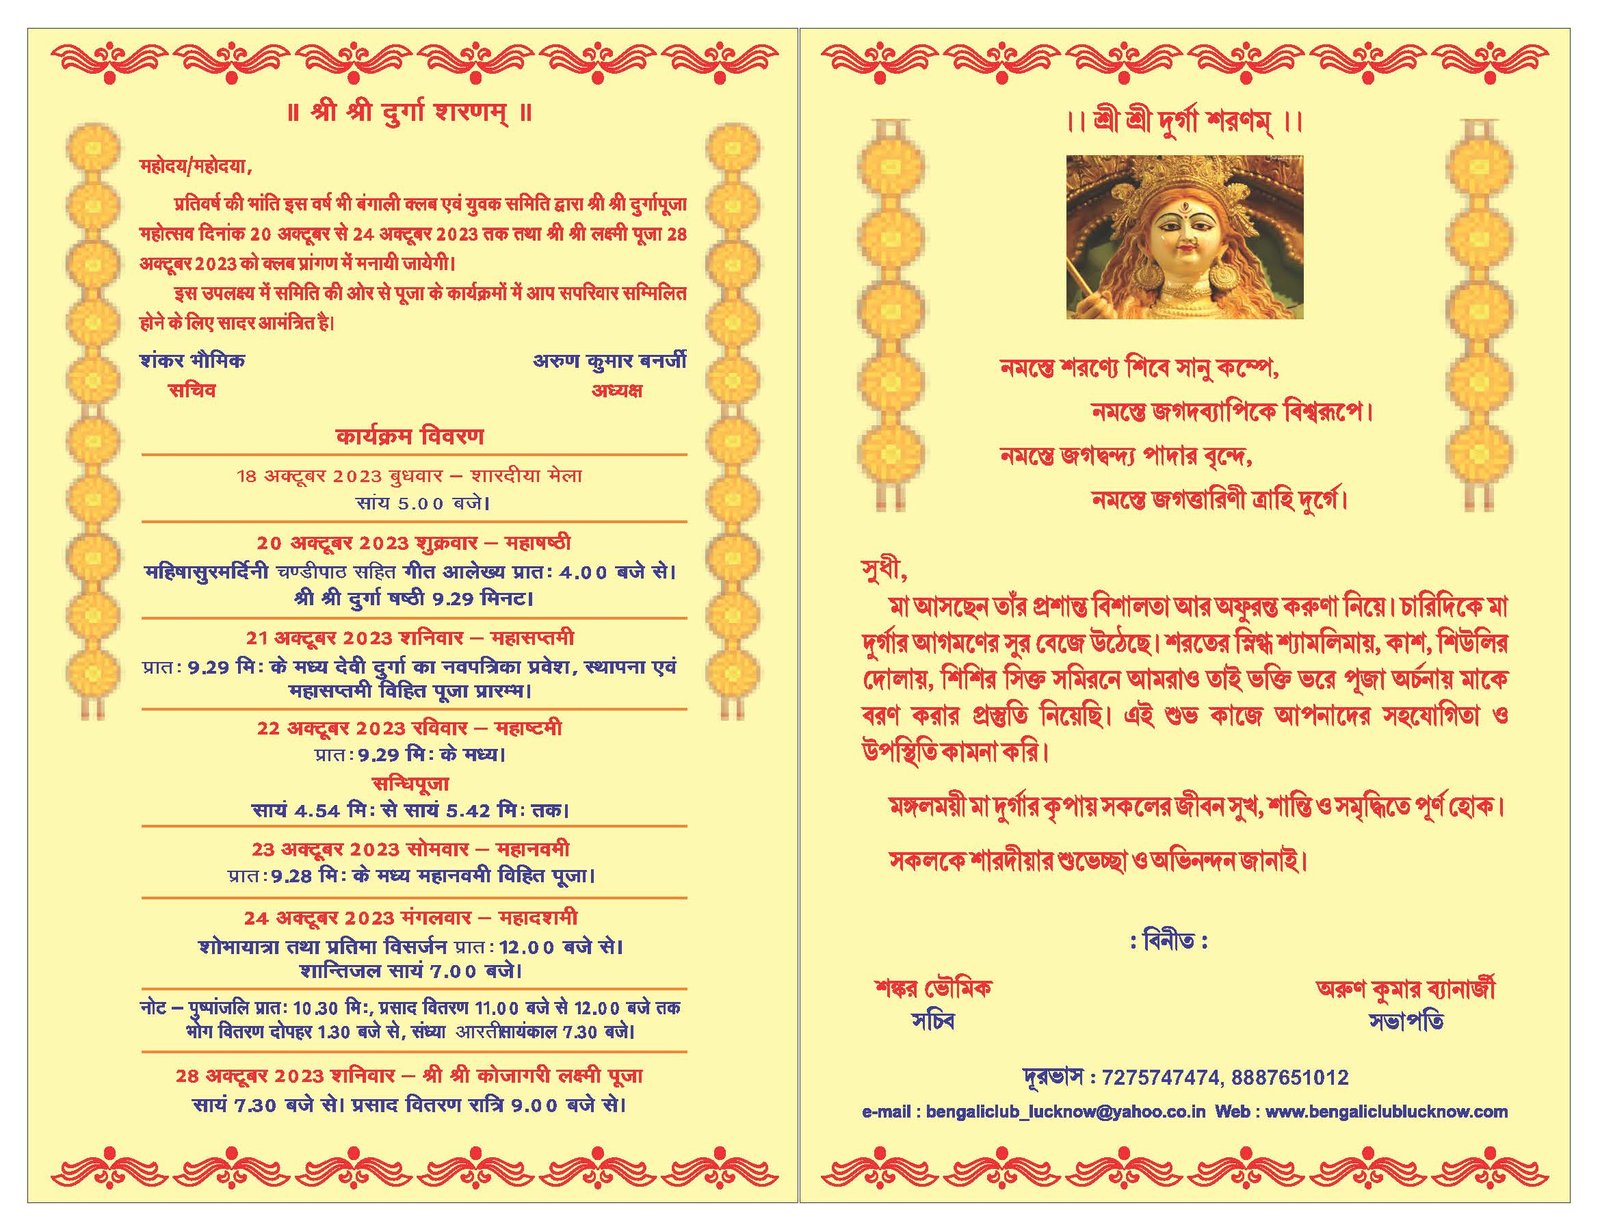 ॥ श्री श्री दुर्गा शरणम् ॥
महोदय/महोदया,
प्रतिवर्ष की भांति इस वर्ष भी बंगाली क्लब एवं युवक समिति द्वारा श्री श्री दुर्गापूजा
महोत्सव दिनांक 20 अक्टूबर से 24 अक्टूबर 2023 तक तथा श्री श्री लक्ष्मी पूजा 28
अक्टूबर 2023 को क्लब प्रांगण में मनायी जायेगी।
इस उपलक्ष्य में समिति की ओर से पूजा के कार्यक्रमों में आप सपरिवार सम्मिलित
होने के लिए सादर आमंत्रित है।
शंकर भौमिक अरुण कुमार बनर्जी
सचिव अध्यक्ष
कार्यक्रम विवरण
18 अक्टूबर 2023 बुधवार – शारदीया मेला
सांय 5.00 बजे।
20 अक्टूबर 2023 शुक्रवार – महाषष्ठी
महिषासुरमर्दिनी चण्डीपाठ सहित गीत आलेख्य प्रात: 4.00 बजे से।
श्री श्री दुर्गा षष्ठी 9.29 मिनट।
21 अक्टूबर 2023 शनिवार – महासप्तमी
प्रात: 9.29 मि: के मध्य देवी दुर्गा का नवपत्रिका प्रवेश, स्थापना एवं
महासप्तमी विहित पूजा प्रारम्भ।
22 अक्टूबर 2023 रविवार – महाष्टमी
प्रात: 9.29 मि: के मध्य।
सन्धिपूजा
सायं 4.54 मि: से सायं 5.42 मि: तक।
23 अक्टूबर 2023 सोमवार – महानवमी
प्रात: 9.28 मि: के मध्य महानवमी विहित पूजा।
24 अक्टूबर 2023 मंगलवार – महादशमी
शोभायात्रा तथा प्रतिमा विसर्जन प्रात: 12.00 बजे से।
शान्तिजल सायं 7.00 बजे।
नोट – पुष्पांजलि प्रात: 10.30 मि:, प्रसाद वितरण 11.00 बजे से 12.00 बजे तक
भोग वितरण दोपहर 1.30 बजे से, संध्या आरती सायंकाल 7.30 बजे।
28 अक्टूबर 2023 शनिवार – श्री श्री कोजागरी लक्ष्मी पूजा
सायं 7.30 बजे से। प्रसाद वितरण रात्रि 9.00 बजे से।
।। শ্রী শ্রী দুর্গা শরণম্ ।।
নমস্তে শরণ্যে শিবে সানু কম্পে,
নমস্তে জগদব্যাপিকে বিশ্বরূপে।
নমস্তে জগদ্বন্দ্য পাদার বৃন্দে,
নমস্তে জগত্তারিণী ত্রাহি দুর্গে।
সুধী,
মা আসছেন তাঁর প্রশান্ত বিশালতা আর অফুরন্ত করুণা নিয়ে। চারিদিকে মা
দুর্গার আগমণের সুর বেজে উঠেছে। শরতের স্নিগ্ধ শ্যামলিমায়, কাশ, শিউলির
দোলায়, শিশির সিক্ত সমিরনে আমরাও তাই ভক্তি ভরে পূজা অর্চনায় মাকে
বরণ করার প্রস্তুতি নিয়েছি। এই শুভ কাজে আপনাদের সহযোগিতা ও
উপস্থিতি কামনা করি।
মঙ্গলময়ী মা দুর্গার কৃপায় সকলের জীবন সুখ, শান্তি ও সমৃদ্ধিতে পূর্ণ হোক।
সকলকে শারদীয়ার শুভেচ্ছা ও অভিনন্দন জানাই।
: বিনীত :
শঙ্কর ভৌমিক অরুণ কুমার ব্যানার্জী
সচিব সভাপতি
দূরভাস : 7275747474, 8887651012
e-mail : bengaliclub_lucknow@yahoo.co.in Web : www.bengaliclublucknow.com